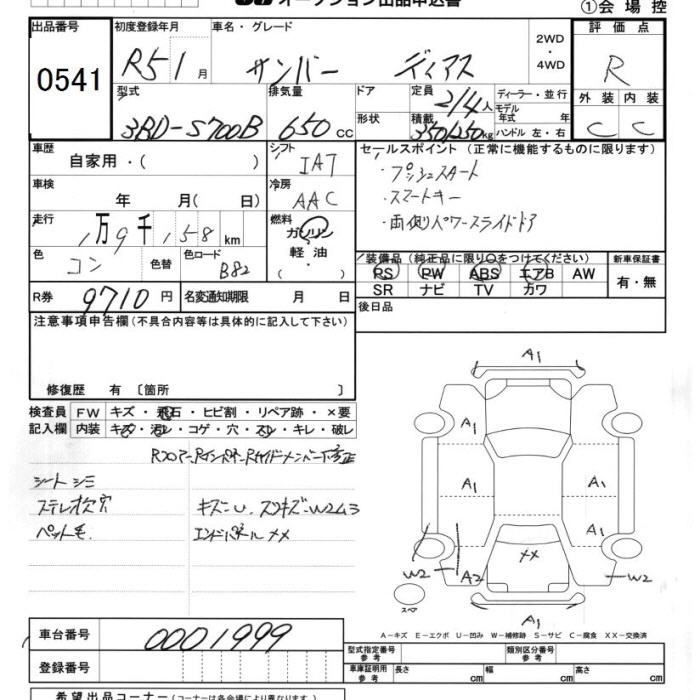 オークション出品申込書
①会場控
出品番号 初度登録年月 車名・グレード 2WD・4WD 評価点
0541 R5 1月 サンバー ディアス R
型式 排気量 ドア 定員 2/4人 ディーラー・並行 外装 内装
3BD-S700B 650cc 形状 積載 350/250kg モデル年式 年式 ハンドル 左・右 C C
車歴 自家用・( ) シフト IAT セールスポイント(正常に機能するものに限ります)
・プッシュスタート
車検 年 月( 日) 冷房 AAC ・スマートキー
走行 1万9千158km 燃料 ガソリン 軽油 ( ・ ) ・両側パワースライドドア
色 コン 色替 色コード B82 装備品(純正品に限り○をつけてください) 新車保証書
PS PW ABS エアB AW 有・無
SR ナビ TV カワ
R券 9710円 名変通知期限 月 日 後日品
注意事項申告欄(不具合内容等は具体的に記入して下さい)
修復歴 有 〔箇所 〕
検査員 FW キズ・飛石・ヒビ割・リペア跡・×要
記入欄 内装 キズ・汚レ・コゲ・穴・スレ・キレ・破レ
Rフロアー、Rインパネ、Rサイドメンバー修正
シートシミ
ステレオ欠穴 キズ-U、スリキズ-W2ム3
ペット毛 エンドパネルメメ
A1
A1 A1
A1 A1
メメ
W2 A2 W2
スペア A1
A-キズ E-エクボ U-凹み W-補修跡 S-サビ C-腐食 XX-交換済
車台番号 0001999
型式指定番号 参考 類別区分番号 参考
登録番号 車庫証明用 参考 長さ cm 幅 cm 高さ cm
希望出品コーナー(コーナーは各会場により異なります)